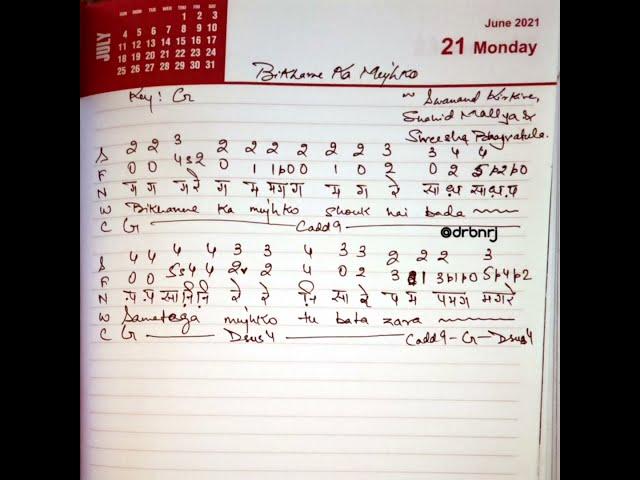 JULY
SUN MON TUE WED THU FRI SAT
1 2 3
4 5 6 7 8 9 10
11 12 13 14 15 16 17
18 19 20 21 22 23 24
25 26 27 28 29 30 31
June 2021
21 Monday
Bikharne Ka Mujhko
Key: G
~ Swanand Kirkire,
Shahid Mallya &
Shreesha Bhagavatula.
S 2 2 3 2 2 2 2 2 2 3 3 4 4
F 0 0 4s2 0 1 1p0 0 1 0 2 0 2 5p2p0
N ग ग गरे ग म मगग म ग रे सा ध़ साध़प़
W Bikharne ka mujhko shouk hai bada
C G Cadd9
@drbnrj
S 4 4 4 4 3 3 4 3 3 2 2 2 3
F 0 0 5s4 4 2 2 4 0 2 3 1 3p1p0 5p4p2
N प़ प़ सानि़नि़ रे रे नि़ सा रे प म पमग मगरे
W Sametega mujhko tu bata zara
C G Dsus4 Cadd9 - G - Dsus4